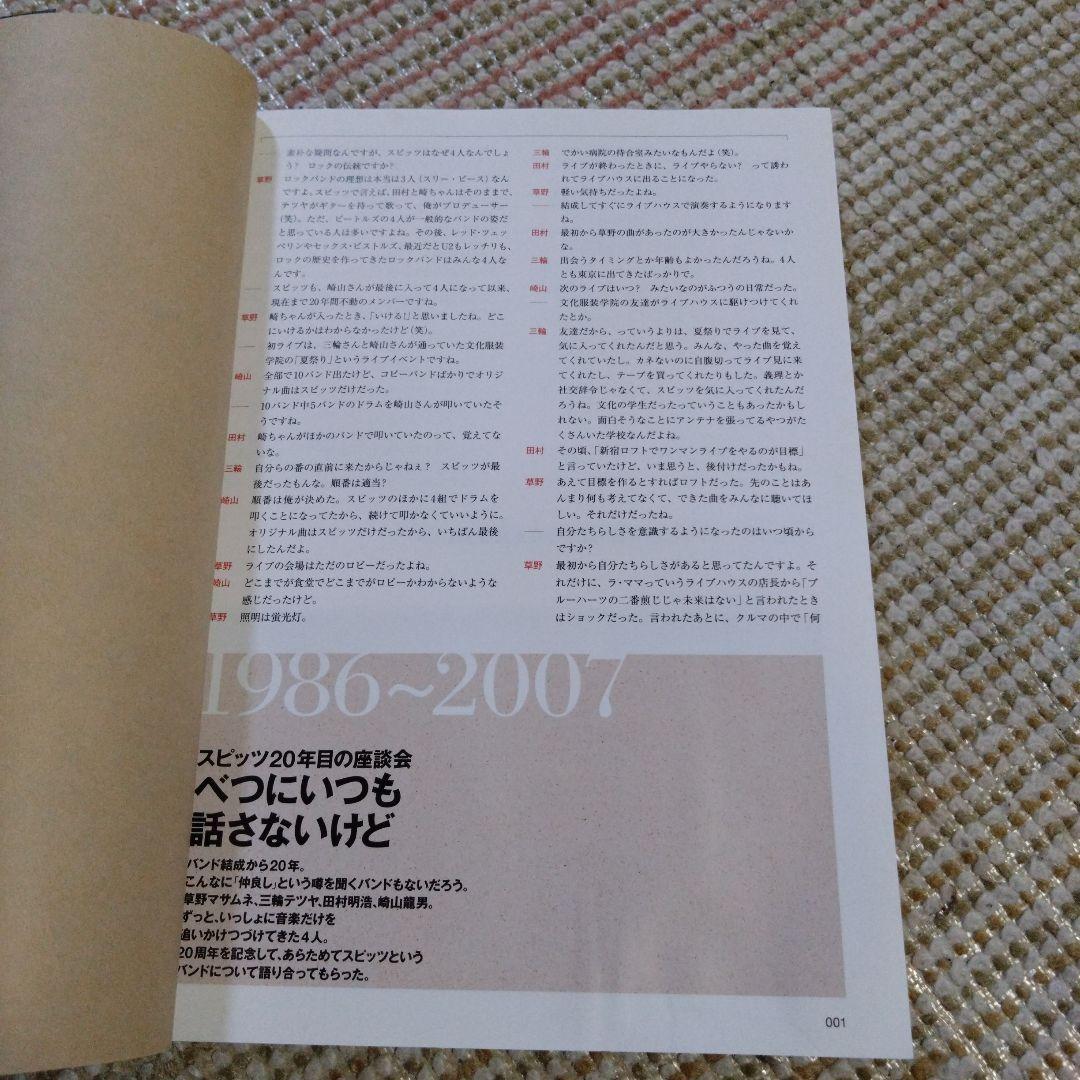 ―― 素朴な疑問なんですが、スピッツはなぜ4人なんでしょ
う? ロックの伝統ですか?
草野 ロックバンドの理想は本当は3人(スリー・ピース)なん
ですよ。スピッツで言えば、田村と崎ちゃんはそのままで、
テツヤがギターを持って歌って、俺がプロデューサー
(笑)。ただ、ビートルズの4人が一般的なバンドの姿だ
と思っている人は多いですよね。その後、レッド・ツェッ
ペリンやセックス・ピストルズ、最近だとU2もレッチリも、
ロックの歴史を作ってきたロックバンドはみんな4人な
んです。
―― スピッツも、崎山さんが最後に入って4人になって以来、
現在まで20年間不動のメンバーですね。
草野 崎ちゃんが入ったとき、「いける!」と思いましたね。どこ
にいけるかはわからなかったけど(笑)。
―― 初ライブは、三輪さんと崎山さんが通っていた文化服装
学院の「夏祭り」というライブイベントですね。
崎山 全部で10バンド出たけど、コピーバンドばかりでオリジ
ナル曲はスピッツだけだった。
―― 10バンド中5バンドのドラムを崎山さんが叩いていたそ
うですね。
田村 崎ちゃんがほかのバンドで叩いていたのって、覚えてな
いな。
三輪 自分らの番の直前に来たからじゃねぇ? スピッツが最
後だったもんな。順番は適当?
崎山 順番は俺が決めた。スピッツのほかに4組でドラムを
叩くことになってたから、続けて叩かなくていいように。
オリジナル曲はスピッツだけだったから、いちばん最後
にしたんだよ。
草野 ライブの会場はただのロビーだったよね。
崎山 どこまでが食堂でどこまでがロビーかわからないような
感じだったけど。
草野 照明は蛍光灯。
三輪 でかい病院の待合室みたいなもんだよ(笑)。
田村 ライブが終わったときに、ライブやらない? って誘わ
れてライブハウスに出ることになった。
草野 軽い気持ちだったよね。
―― 結成してすぐにライブハウスで演奏するようになります
ね。
田村 最初から草野の曲があったのが大きかったんじゃないか
な。
三輪 出会うタイミングとか年齢もよかったんだろうね。4人
とも東京に出てきたばっかりで。
崎山 次のライブはいつ? みたいなのがふつうの日常だった。
―― 文化服装学院の友達がライブハウスに駆けつけてくれ
たとか。
三輪 友達だから、っていうよりは、夏祭りでライブを見て、
気に入ってくれたんだと思う。みんな、やった曲を覚え
てくれていたし。カネないのに自腹切ってライブ見に来
てくれたし、テープを買ってくれたりもした。義理とか
社交辞令じゃなくて、スピッツを気に入ってくれたんだ
ろうね。文化の学生だったっていうこともあったかもし
れない。面白そうなことにアンテナを張ってるやつがた
くさんいた学校なんだよね。
田村 その頃、「新宿ロフトでワンマンライブをやるのが目標」
と言っていたけど、いま思うと、後付けだったかもね。
草野 あえて目標を作るとすればロフトだった。先のことはあ
んまり何も考えてなくて、できた曲をみんなに聴いてほ
しい。それだけだったね。
―― 自分たちらしさを意識するようになったのはいつ頃から
ですか?
草野 最初から自分たちらしさがあると思ってたんですよ。そ
れだけに、ラ・ママっていうライブハウスの店長から「ブ
ルーハーツの二番煎じじゃ未来はない」と言われたとき
はショックだった。言われたあとに、クルマの中で「何
1986~2007
スピッツ20年目の座談会
べつにいつも
話さないけど
バンド結成から20年。
こんなに「仲良し」という噂を聞くバンドもないだろう。
草野マサムネ、三輪テツヤ、田村明浩、崎山龍男。
ずっと、いっしょに音楽だけを
追いかけつづけてきた4人。
20周年を記念して、あらためてスピッツという
バンドについて語り合ってもらった。
001